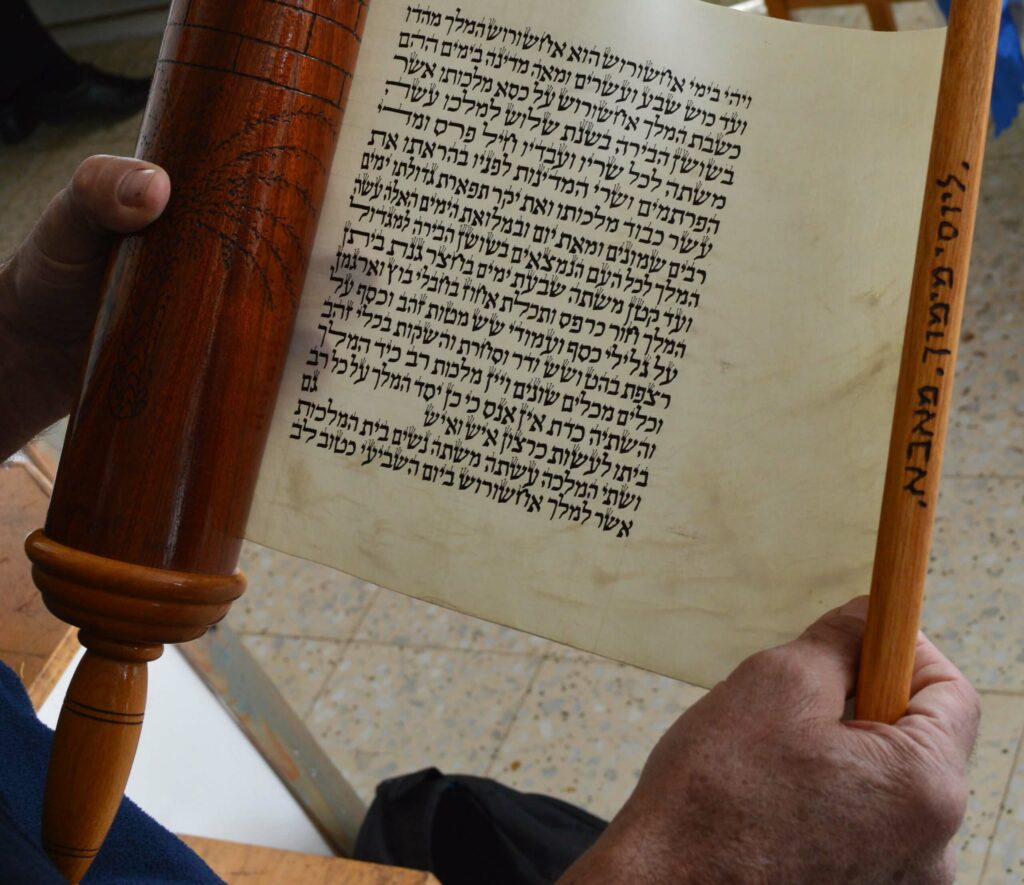 ויהי בימי אחשורוש הוא אחשורוש המלך מהדו
ועד כוש שבע ועשרים ומאה מדינה בימים ההם
כשבת המלך אחשורוש על כסא מלכותו אשר
בשושן הבירה בשנת שלוש למלכו עשה
משתה לכל שריו ועבדיו חיל פרס ומדי
הפרתמים ושרי המדינות לפניו בהראתו את
עשר כבוד מלכותו ואת יקר תפארת גדולתו ימים
רבים שמונים ומאת יום ובמלואת הימים האלה עשה
המלך לכל העם הנמצאים בשושן הבירה למגדול
ועד קטן משתה שבעת ימים בחצר גנת ביתן
המלך חור כרפס ותכלת אחוז בחבלי בוץ וארגמן
על גלילי כסף ועמודי שש מטות זהב וכסף על
רצפת בהט ושש ודר וסחרת והשקות בכלי זהב
וכלים מכלים שונים ויין מלכות רב כיד המלך
והשתיה כדת אין אנס כי כן יסד המלך על כל רב
ביתו לעשות כרצון איש ואיש גם
ושתי המלכה עשתה משתה נשים בית המלכות
אשר למלך אחשורוש ביום השביעי כטוב לב
ליוסי מימון